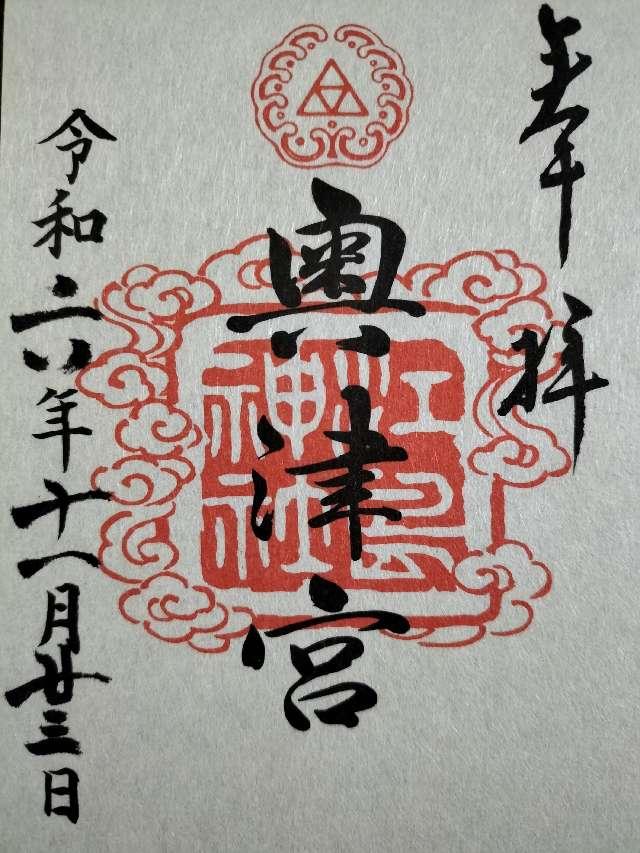 奉拝
奥津宮
江島
神社
令和六年十一月廿三日